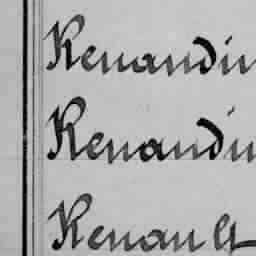 Renaudin
Renaudin
Renault